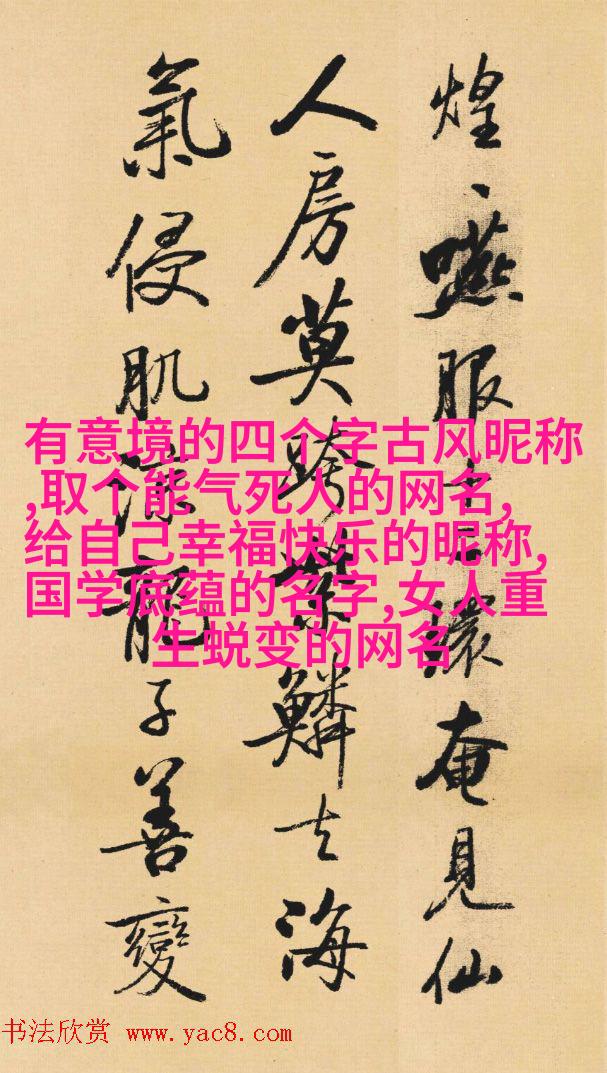 煌〻嚥服十二環奄見仙
人房莫跨紫鱗去海
氣侵肌涼龍子善變
有意境的四个字古风昵称
,取个能气死人的网名,
给自己幸福快乐的昵称,
国学底蕴的名字,女人重
生蜕变的网名
书法欣赏 www.yac8.com